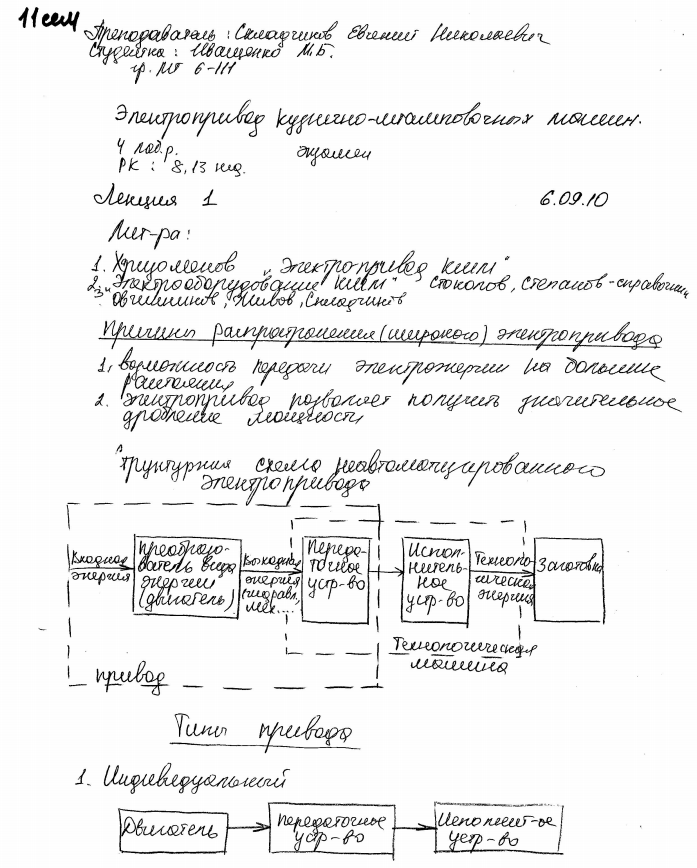 11 сем
Преподаватель: Складчиков Евгений Николаевич
Студентка: Иващенко М.Б.
гр. МТ 6-111
Электропривод кузнечно-штамповочных машин.
4 лаб.р. экзамен
РК: 8,13 нед.
Лекция 1 6.09.10
Лит-ра:
1. "Электропривод КШМ"
2. "Электрооборудование КШМ" Соколов, Степанов-справочник
3. Овчинников, Живов, Складчиков
Причины распространения (широкого) электропривода
1, возможность передачи электроэнергии на большие
расстояния
2. Электропривод позволяет получить значительное
дробление мощности
Структурная схема неавтоматизированного
электропривода
Входная
энергия
Преобразо-
ватель вида
энергии
(двигатель)
Выходная
энергия
(гидравл,
мех....
Переда-
точное
устр-во
Испол-
нитель-
ное
устр-во
Техноло-
гическая
энергия
Заготовка
Технологическая
машина
привод
Типы привода
1. Индивидуальный
Двигатель
Передаточное
устр-во
Исполнит-ое
устр-во